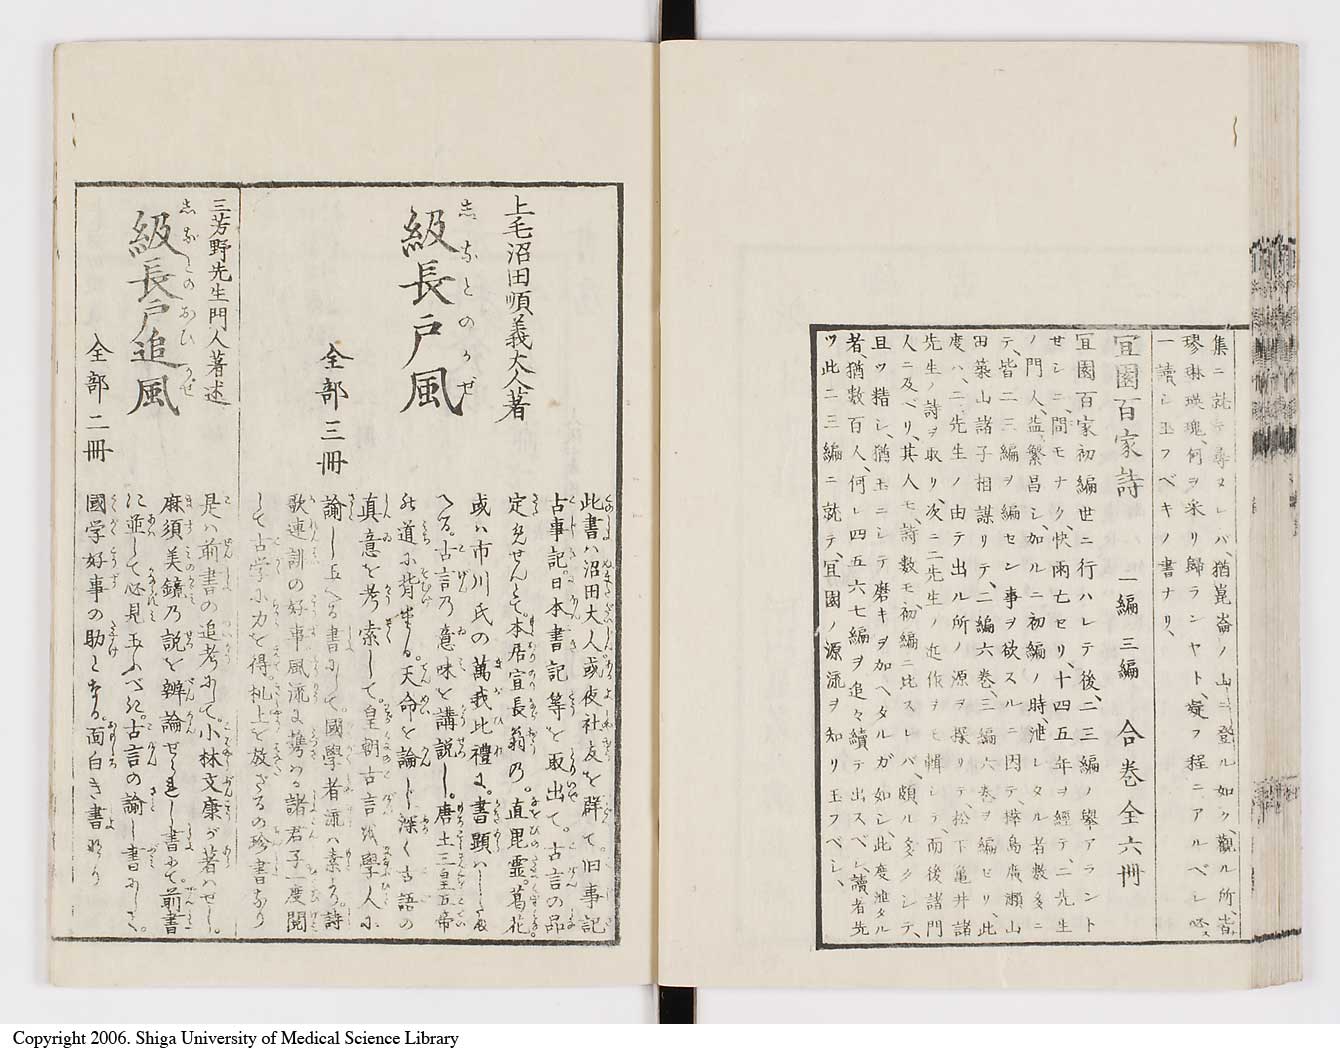 集ニ就キ尋ヌレバ、猶崑崙ノ山ニ登ル如ク、觀ル所、皆
璆琳瑛瑰、何ヲ采リ歸ランヤト、疑フ程ニアルベシ、必ス
一讀シ玉フベキノ書ナリ、
宜園百家詩 二編 三編 合巻全六冊
宜園百家初編世ニ行ハレテ後、二三編ノ擧アラント
セシニ、間モナク、快雨七セリ、十四五年ヲ經テ、二先生
ノ門人、益繁昌シ、加ルニ初編ノ時、泄レタル者數多ニ
テ、皆二三編ヲ編セン事ヲ欲スルニ因テ、擇鳥廣瀬山
田築山諸子相謀リテ、二編六巻、三編六巻ヲ編セリ、此
度ハ、二先生ノ由テ出ル所ノ源ヲ探リテ、松下亀井諸
先生ノ詩ヲ取リ、次ニ二先生ノ近作ヲモ輯シテ、而後諸門
人ニ及ベリ、其人モ、詩數モ、初編ニ比スレバ、頗ル多クシテ、
且ツ精シ、猶玉ニシテ磨キヲ加ヘタルガ如シ、此度泄タル
者、猶數百人、何レ四五六七編ヲ追々續テ出スベシ、讀者先
ツ此二三編ニ就テ、宜園ノ源流ヲ知リ玉フベシ、
上毛沼田順義大人著
級長戸風
しなとのかぜ
全部三冊
此書ハ沼田大人。或夜社友を群て旧事記
古事記。日本書記等を取出て。古言の品
定めせんとて。本居宣長翁の。直毘霊。葛花
或ハ市川氏の萬我比禮に。書顕ハしたまへる。古言乃意味を講説し。唐土三皇五帝
の道に背ける。天命を論じ。深く古語の
真意を考索して。皇朝古言哉學人に
論し玉へる書にして。國學者流ハ素より。詩
歌連誹の好事風流に携ハる諸君子一度閲
して古学に力を得。机上を放ざるの珍書なり
三芳野先生門人著述
級長戸追風
しなとのおひかぜ
全部二冊
是ハ前書の追考にして。小林文康が著ハせし。
麻須美鏡乃説を辨論せられし書にて。前書
に並して必見玉ふべき。古言の論し書にして。
國学好事の助となる。面白き書なり
Copyright 2006. Shiga University of Medical Science Library